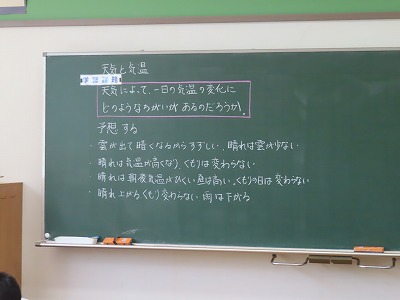 天気と気温
学習問題
天気によって、一日の気温の変化に
どのようなちがいがあるのだろうか。
予想する
・雲が出て暗くなるからすずしい、晴れは雲が少ない
・晴れは気温が高くなり、くもりは変わらない
・晴れは朝夜気温がひくい昼は高い、くもりの日は変わらない
・晴れ上がるくもり変わらない雨は下がる